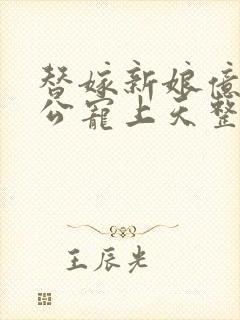 替嫁新娘億
公寵上天整
王辰光